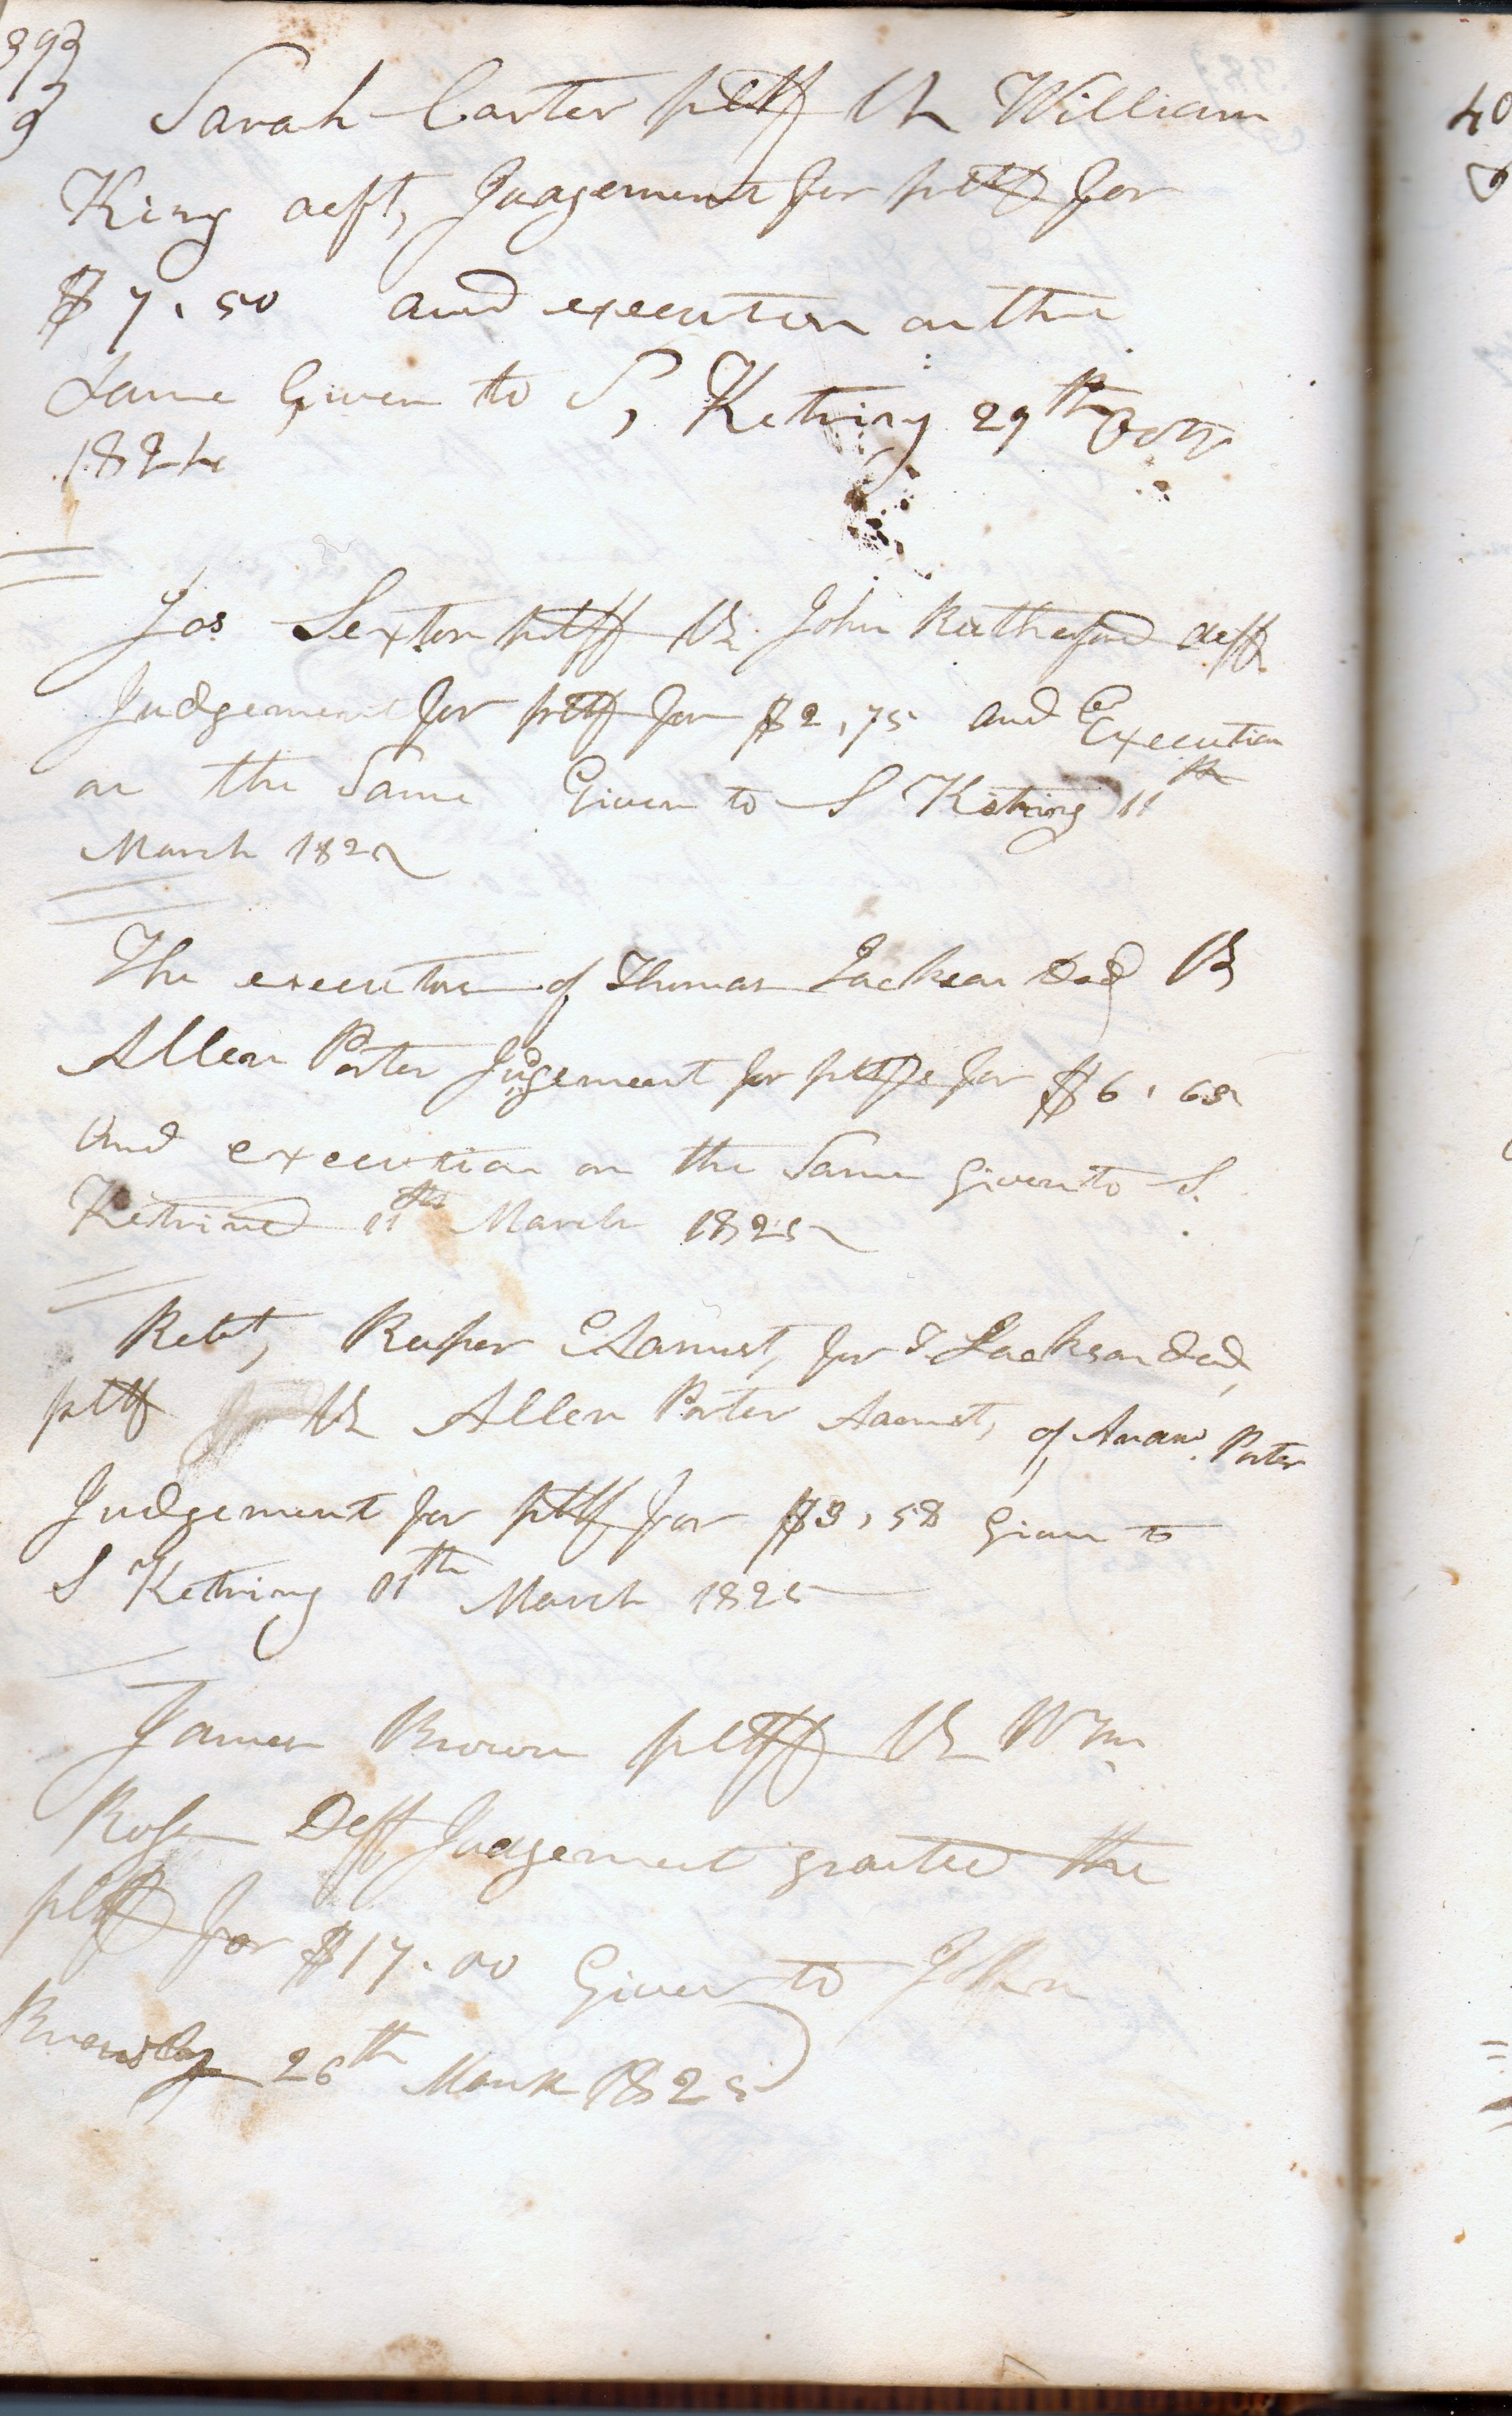 393
9
Sarah Carter pltff Vs William
King deft, Judgement for pltff for
$7.50 and execution on the
same Given to S, Ketring 29th
1824
Jos Sexton pltff Vs. John Rutherford deff
Judgement for pltff for $2,75 and Execution
on the Same Given to S Ketring 11th
March 182
The executors of Thomas Jackson Decd Vs
Allen Porter Jugement for pltffs for $6.68
And execution on the Same Given to S.
Ketrine 11th March 1825
Robt, for T Jackson Decd,
pltff Vs Allen Porter of Porter
Judgement for pltff for $3,58 Given to
S Ketring 11th March 1825
James Brown pltff Vs Wm
Ross Deff Judgement granted the
pltff for $17.00 Given to John
26th March 1825
40